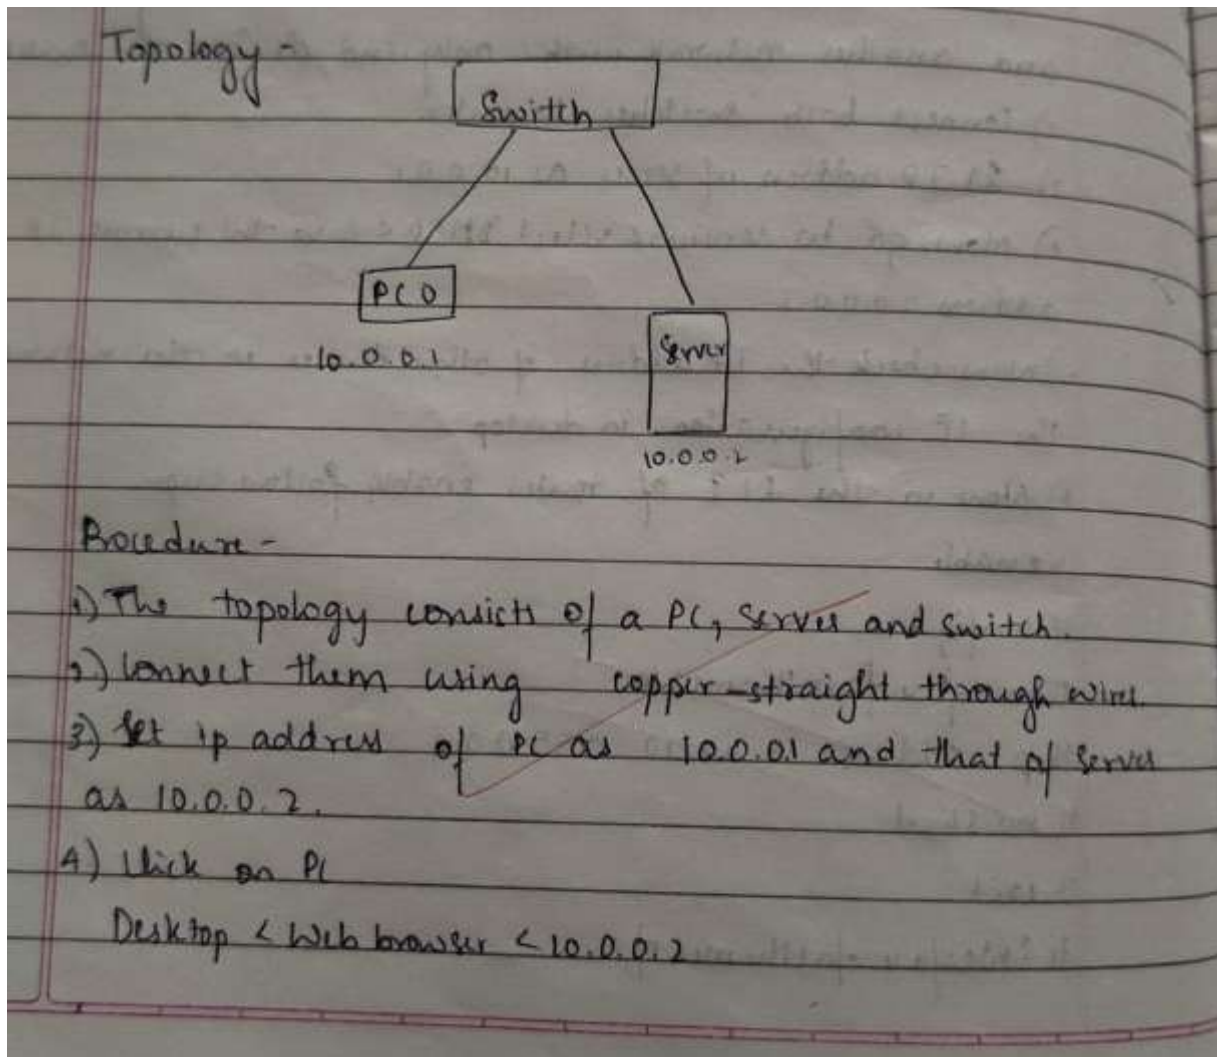 Topology -
Switch
PC 0
Server
10.0.0.1
10.0.0.2
Procedure -
1) The topology consists of a PC, Server and switch.
2) Connect them using copper-straight through wires.
3) Set ip address of PC as 10.0.0.1 and that of server
as 10.0.0.2.
4) Click on PC
Desktop < Web browser < 10.0.0.2